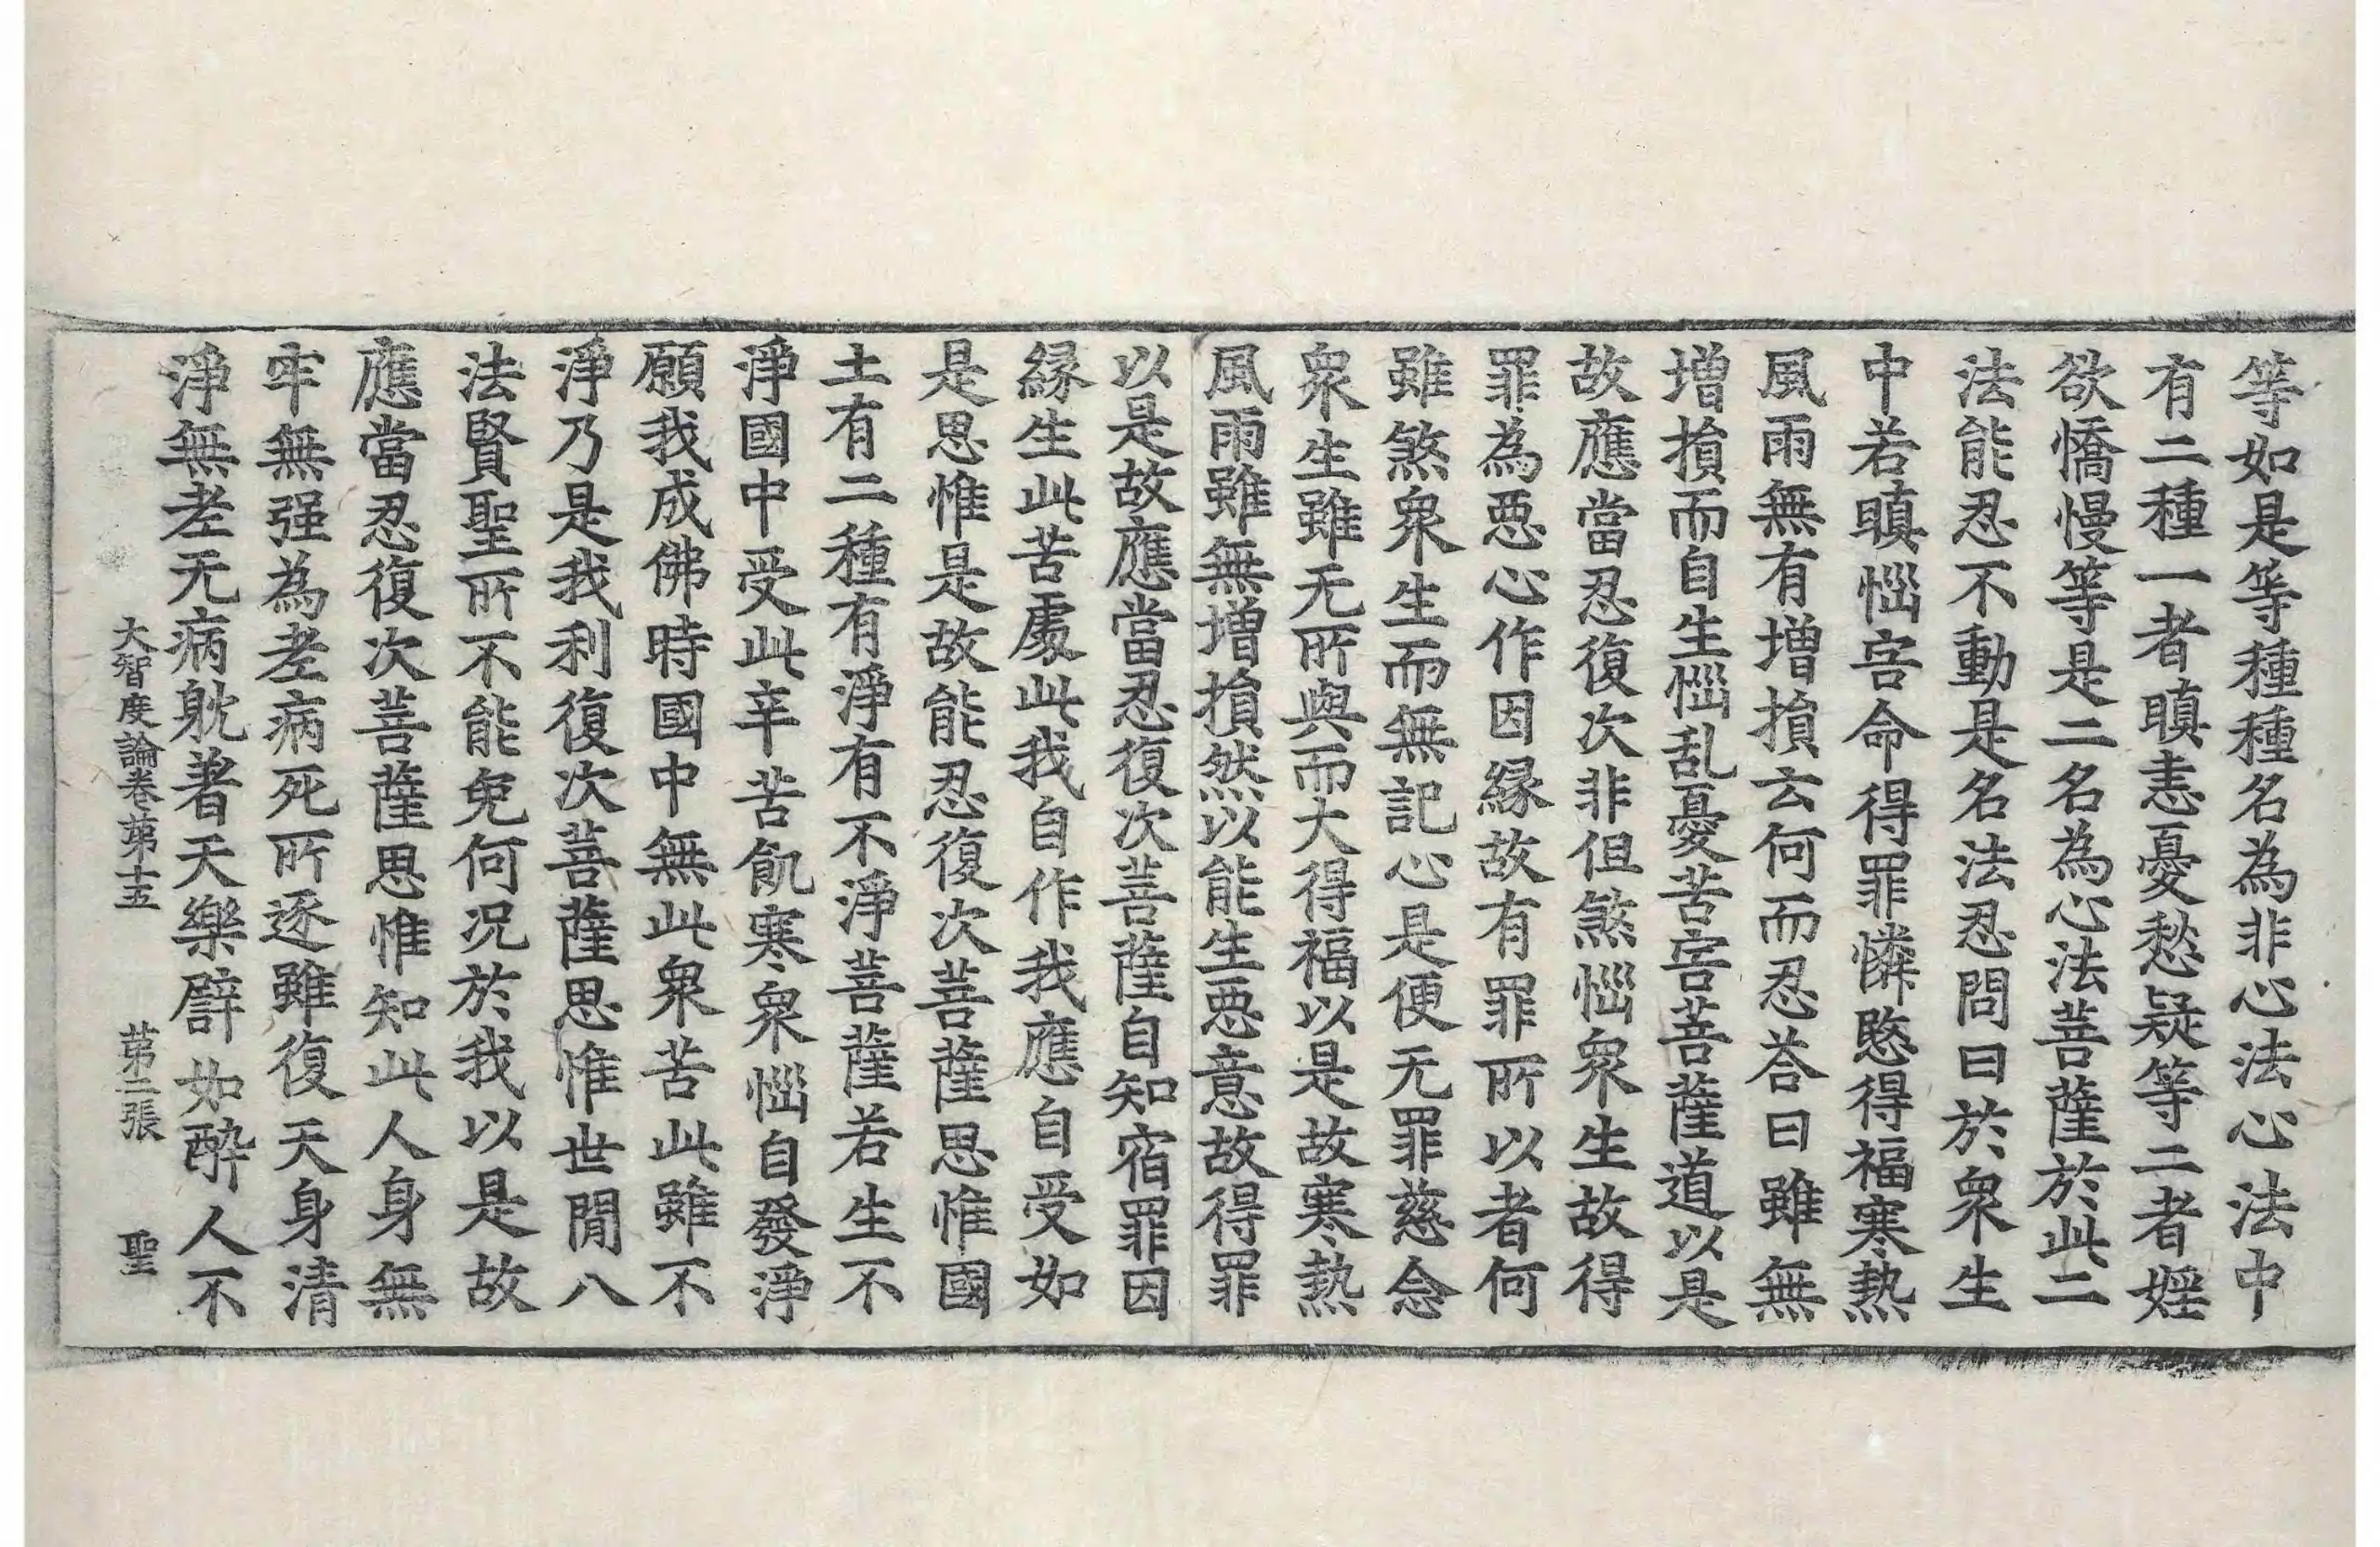 等如是等種種名為非心法心法中
有二種一者瞋恚憂愁疑等二者婬
欲憍慢等是二名為心法菩薩於此二
法能忍不動是名法忍問曰於衆生
中若瞋惱害命得罪憐愍得福寒熱
風雨無有增損云何而忍荅曰雖無
增損而自生惱乱憂苦害菩薩道以是
故應當忍復次非但煞惱衆生故得
罪為惡心作因縁故有罪所以者何
雖煞衆生而無記心是便无罪慈念
衆生雖无所與而大得福以是故寒熱
風雨雖無增損然以能生惡意故得罪
以是故應當忍復次菩薩自知宿罪因
縁生此苦處此我自作我應自受如
是思惟是故能忍復次菩薩思惟國
土有二種有淨有不淨菩薩若生不
淨國中受此辛苦飢寒衆惱自發淨
願我成佛時國中無此衆苦此雖不
淨乃是我利復次菩薩思惟世閒八
法賢聖所不能免何况於我以是故
應當忍復次菩薩思惟知此人身無
牢無强為老病死所逐雖復天身清
淨無老无病躭著天樂譬如醉人不
大智度論卷第十五　第二張　聖